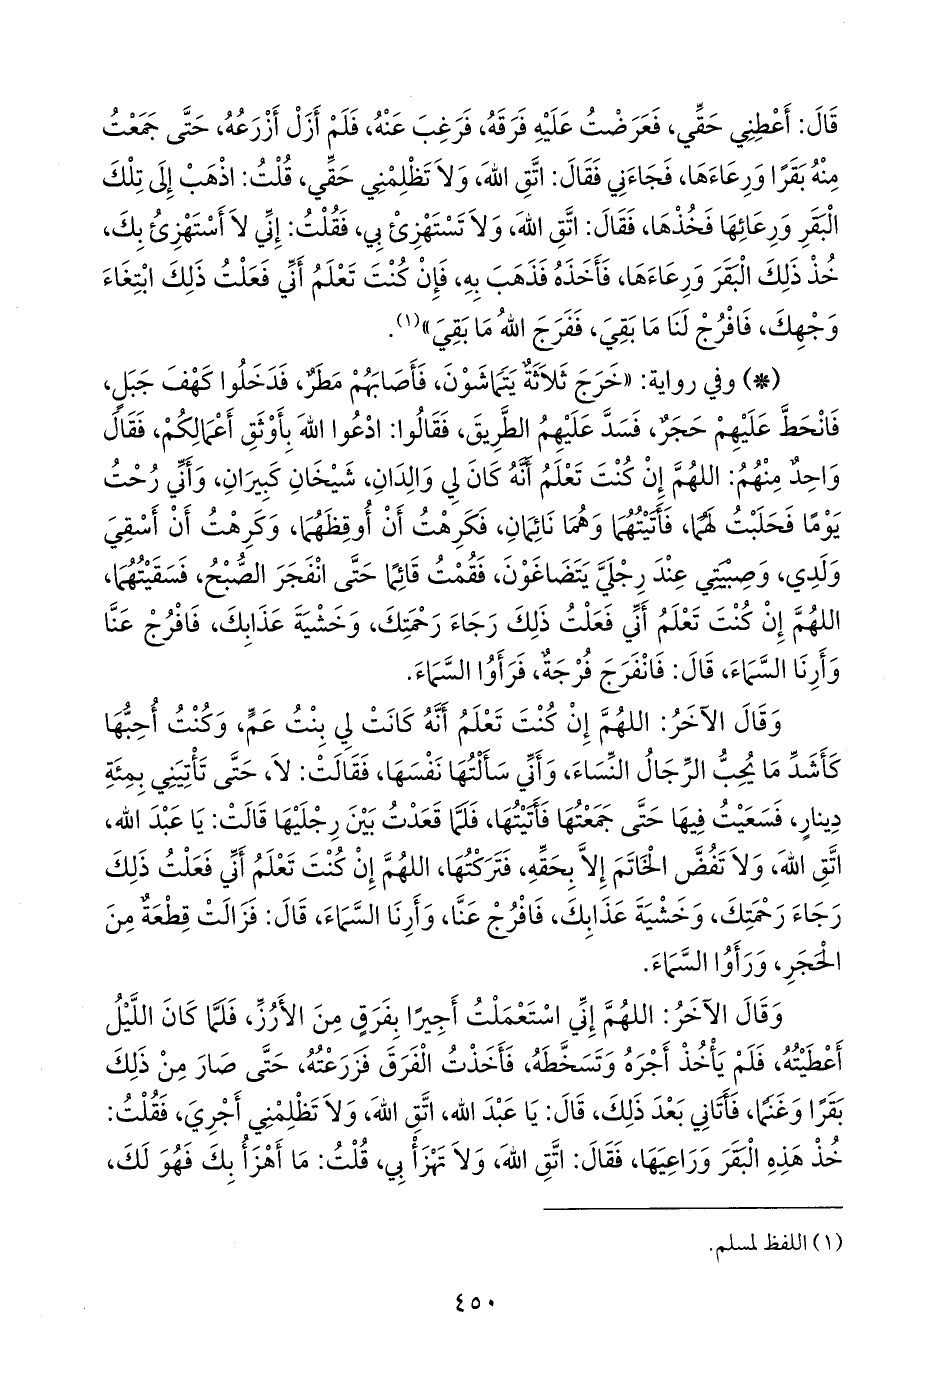 قَالَ: أَعْطِنِي حَقِّي، فَعَرَضْتُ عَلَيْهِ فَرَقَهُ، فَرَغِبَ عَنْهُ، فَلَمْ أَزَلْ أَزْرَعُهُ، حَتَّى جَمَعْتُ
مِنْهُ بَقَرًا وَرِعَاءَهَا، فَجَاءَنِي فَقَالَ: اتَّقِ اللهَ، وَلاَ تَظْلِمْنِي حَقِّي، قُلْتُ: اذْهَبْ إِلَى تِلْكَ
الْبَقَرِ وَرِعَائِهَا فَخُذْهَا، فَقَالَ: اتَّقِ اللهَ، وَلاَ تَسْتَهْزِئْ بِي، فَقُلْتُ: إِنِّي لاَ أَسْتَهْزِئُ بِكَ،
خُذْ ذَلِكَ الْبَقَرَ وَرِعَاءَهَا، فَأَخَذَهُ فَذَهَبَ بِهِ، فَإِنْ كُنْتَ تَعْلَمُ أَنِّي فَعَلْتُ ذَلِكَ ابْتِغَاءَ
وَجْهِكَ، فَافْرُجْ لَنَا مَا بَقِيَ، فَفَرَجَ اللهُ مَا بَقِيَ»(١).
(*) وفي رواية: «خَرَجَ ثَلاَثَةٌ يَتَمَاشَوْنَ، فَأَصَابَهُمْ مَطَرٌ، فَدَخَلُوا كَهْفَ جَبَلٍ،
فَانْحَطَّ عَلَيْهِمْ حَجَرٌ، فَسَدَّ عَلَيْهِمُ الطَّرِيقَ، فَقَالُوا: ادْعُوا اللهَ بِأَوْثَقِ أَعْمَالِكُمْ، فَقَالَ
وَاحِدٌ مِنْهُمُ: اللهُمَّ إِنْ كُنْتَ تَعْلَمُ أَنَّهُ كَانَ لِي وَالِدَانِ، شَيْخَانِ كَبِيرَانِ، وَأَنِّي رُحْتُ
يَوْمًا فَحَلَبْتُ لَهُمَا، فَأَتَيْتُهُمَا وَهُمَا نَائِمَانِ، فَكَرِهْتُ أَنْ أُوقِظَهُمَا، وَكَرِهْتُ أَنْ أَسْقِيَ
وَلَدِي، وَصِبْيَتِي عِنْدَ رِجْلَيَّ يَتَضَاغَوْنَ، فَقُمْتُ قَائِمًا حَتَّى انْفَجَرَ الصُّبْحُ، فَسَقَيْتُهُمَا،
اللهُمَّ إِنْ كُنْتَ تَعْلَمُ أَنِّي فَعَلْتُ ذَلِكَ رَجَاءَ رَحْمَتِكَ، وَخَشْيَةَ عَذَابِكَ، فَافْرُجْ عَنَّا
وَأَرِنَا السَّمَاءَ، قَالَ: فَانْفَرَجَ فُرْجَةٌ، فَرَأَوُا السَّمَاءَ.
وَقَالَ الآخَرُ: اللهُمَّ إِنْ كُنْتَ تَعْلَمُ أَنَّهُ كَانَتْ لِي بِنْتُ عَمٍّ، وَكُنْتُ أُحِبُّهَا
كَأَشَدِّ مَا يُحِبُّ الرِّجَالُ النِّسَاءَ، وَأَنِّي سَأَلْتُهَا نَفْسَهَا، فَقَالَتْ: لاَ، حَتَّى تَأْتِيَنِي بِمِئَةِ
دِينَارٍ، فَسَعَيْتُ فِيهَا حَتَّى جَمَعْتُهَا فَأَتَيْتُهَا، فَلَمَّا قَعَدْتُ بَيْنَ رِجْلَيْهَا قَالَتْ: يَا عَبْدَ الله،
اتَّقِ اللهَ، وَلاَ تَفُضَّ الْخَاتَمَ إِلاَّ بِحَقِّهِ، فَتَرَكْتُهَا، اللهُمَّ إِنْ كُنْتَ تَعْلَمُ أَنِّي فَعَلْتُ ذَلِكَ
رَجَاءَ رَحْمَتِكَ، وَخَشْيَةَ عَذَابِكَ، فَافْرُجْ عَنَّا، وَأَرِنَا السَّمَاءَ، قَالَ: فَزَالَتْ قِطْعَةٌ مِنَ
الْحَجَرِ، وَرَأَوُا السَّمَاءَ.
وَقَالَ الآخَرُ: اللهُمَّ إِنِّي اسْتَعْمَلْتُ أَجِيرًا بِفَرَقٍ مِنَ الأَرُزِّ، فَلَمَّا كَانَ اللَّيْلُ
أَعْطَيْتُهُ، فَلَمْ يَأْخُذْ أَجْرَهُ وَتَسَخَّطَهُ، فَأَخَذْتُ الْفَرَقَ فَزَرَعْتُهُ، حَتَّى صَارَ مِنْ ذَلِكَ
بَقَرًا وَغَنَمًا، فَأَتَانِي بَعْدَ ذَلِكَ، قَالَ: يَا عَبْدَ الله، اتَّقِ اللهَ، وَلاَ تَظْلِمْنِي أَجْرِيَ، فَقُلْتُ:
خُذْ هَذِهِ الْبَقَرَ وَرَاعِيَهَا، فَقَالَ: اتَّقِ اللهَ، وَلاَ تَهْزَأْ بِي، قُلْتُ: مَا أَهْزَأُ بِكَ فَهُوَ لَكَ،
(١) اللفظ لمسلم.
٤٥٠